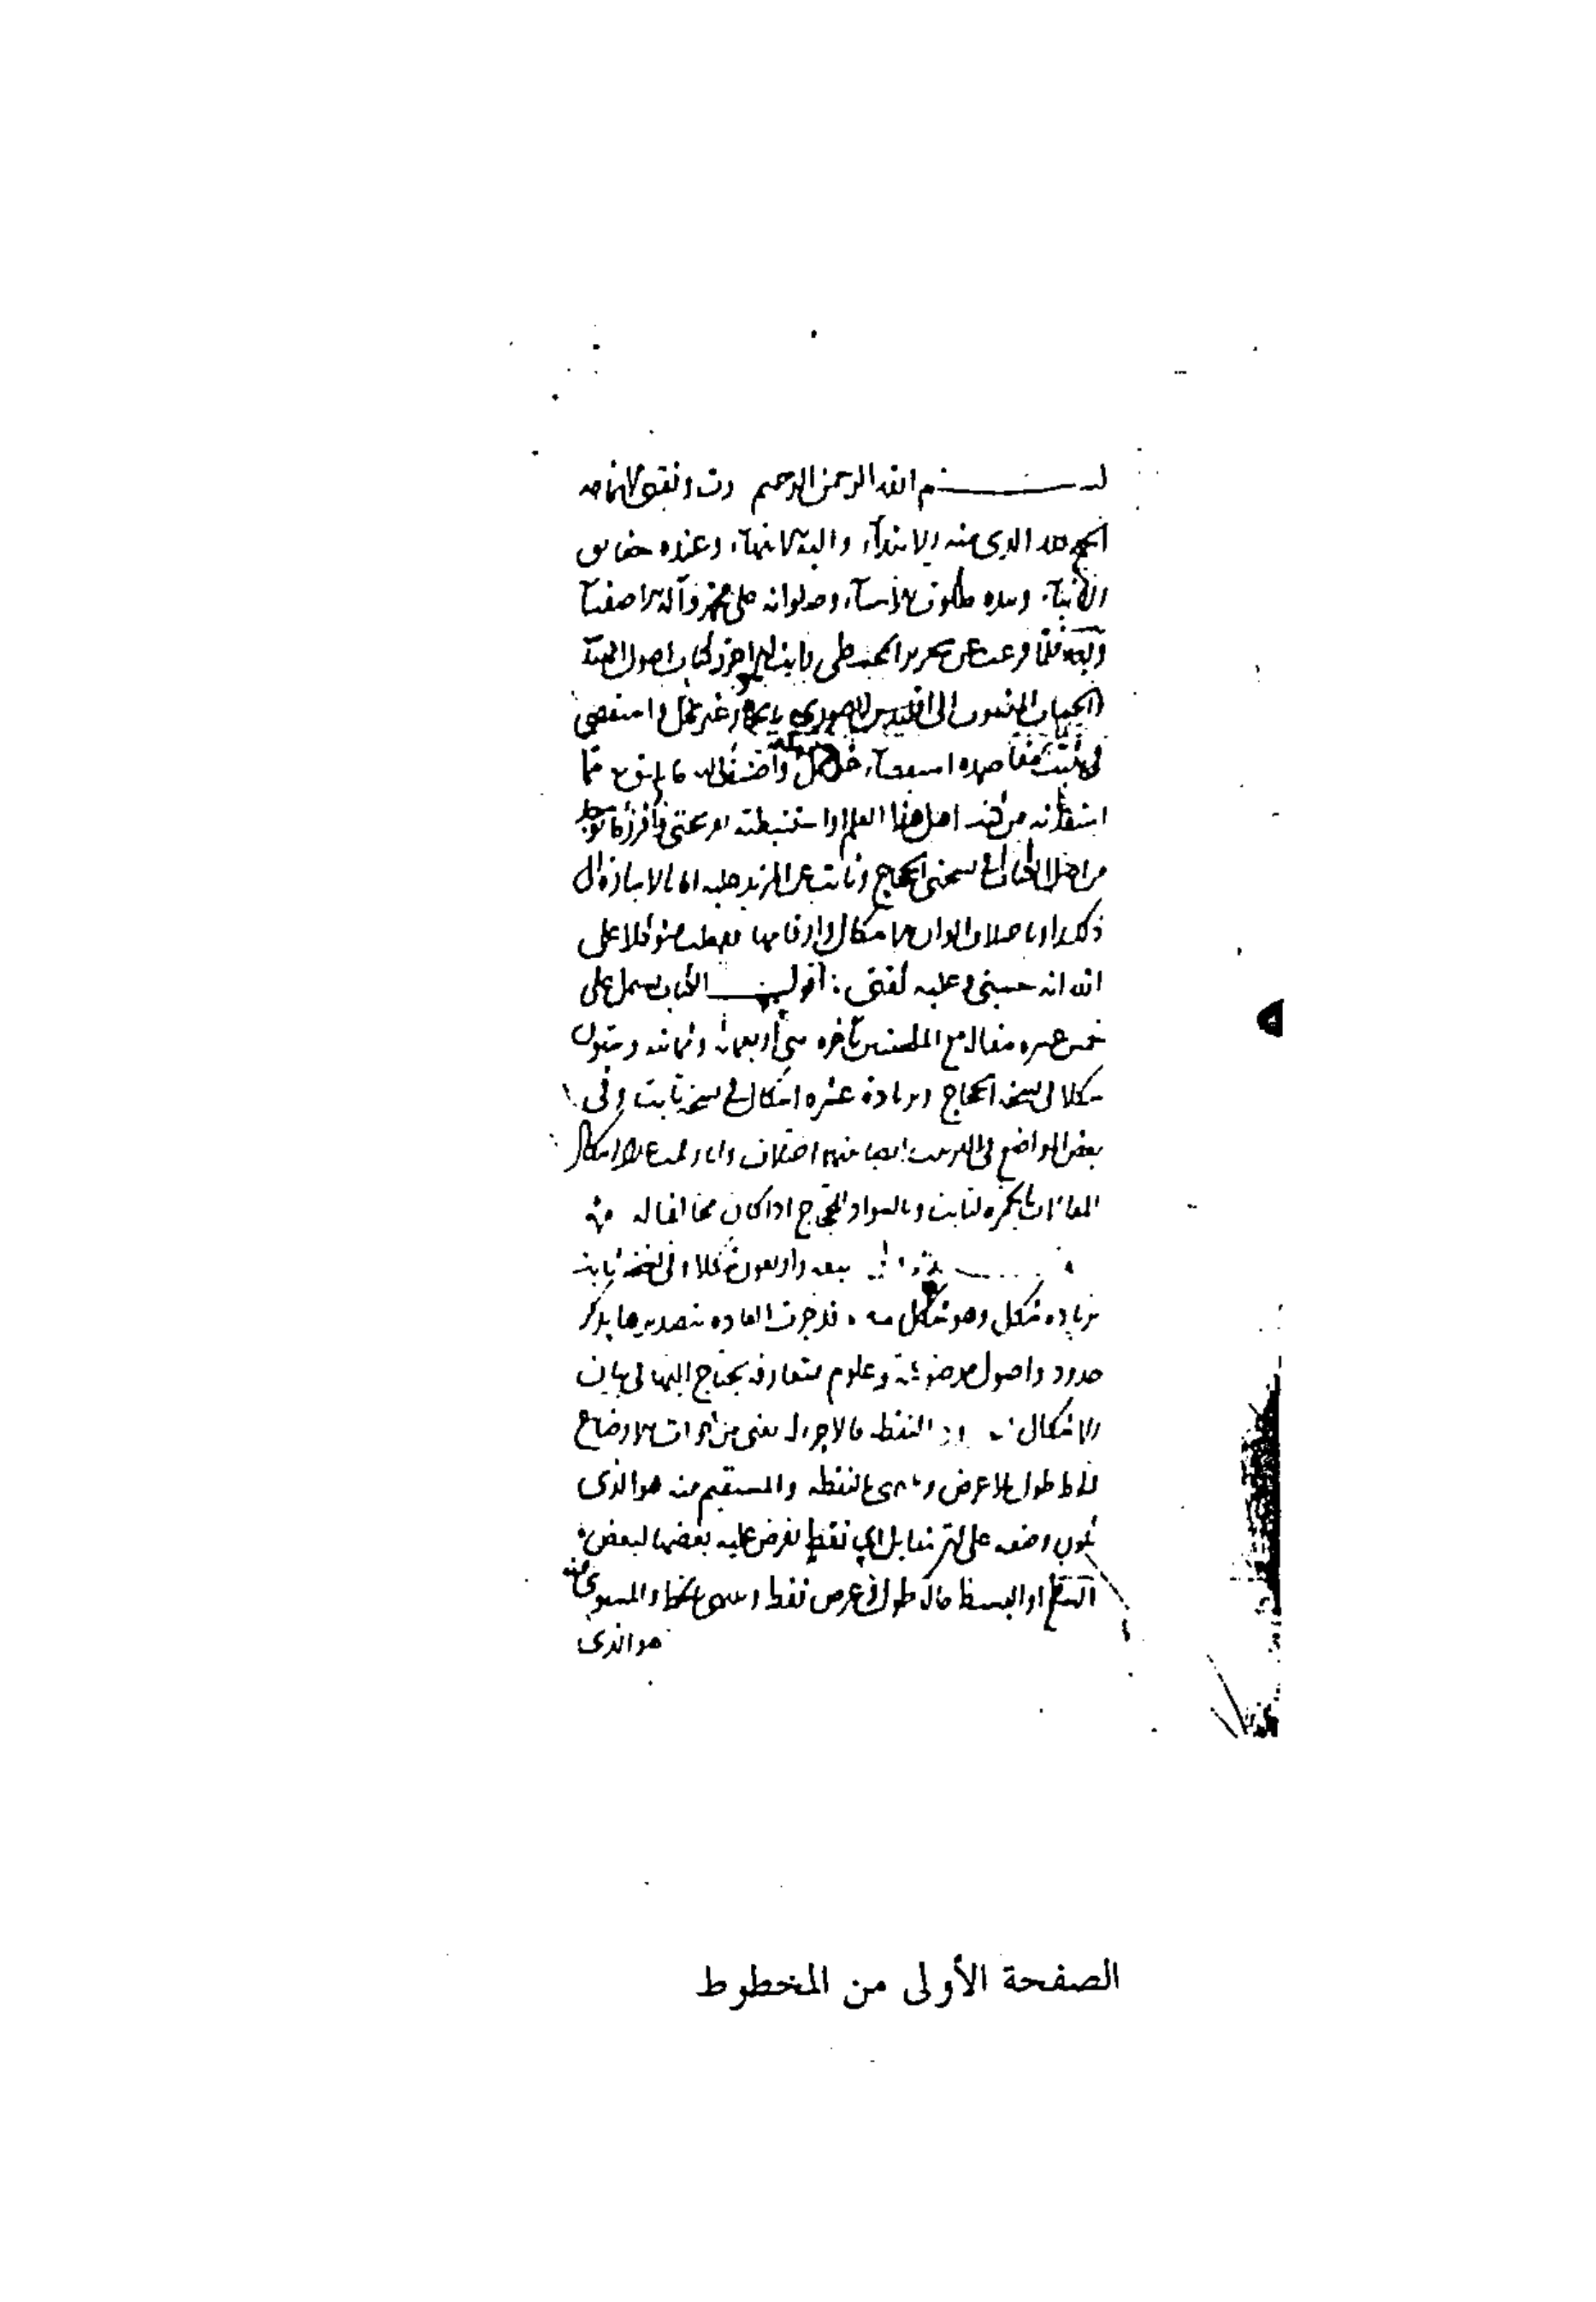 بسم الله الرحمن الرحيم رب وفقني لاتمامه
الحمد لله الذي منه الابتداء واليه الانتهاء وعنده حقايق
الانباء وبيده ملكوت الاشياء وصلواته على محمد وآله الاصفياء
وبعد فلما فرغت عن تحرير المجسطي رايت ان احرر كتاب اصول الهندسة
والحساب المنسوب الى اقليدس الصوري بايجاز غير مخل واستقصي
في ثبت مقاصده استقصاء غير ممل واضيف اليه ما يليق به مما
استفدته من كتب اهل هذا العلم او استنبطته بقريحتي وافرز ما يوجد
من اصل الكتاب في نسختي الحجاج وثابت عن المزيد عليه اما بالاشارة الى
ذلك او باختلاف الوان الاشكال وارقامها ففعلت متوكلا على
الله انه حسبي وعليه ثقتي اقول الكتاب يشتمل على
خمس عشرة مقالة مع الملحقتين بآخره هي اربعمائة وثمانية وستون
شكلا في نسخة الحجاج وبزيادة عشرة اشكال في نسخة ثابت وفي
بعض المواضع في الترتيب ايضا بينهما اختلاف وانا رقمت عدد اشكال
المقالات بالحمرة لثابت وبالسواد للحجاج اذا كان مخالفا له
سبعة واربعون شكلا وفي نسخة ثابت
بزيادة شكل وهو شكل مه قد جرت العادة بتصديرها بذكر
حدود واصول موضوعة وعلوم متعارفة يحتاج اليها في بيان
الاشكال النقطة ما لا جزء له يعني من ذوات الاوضاع
الخط طول بلا عرض وينتهي بالنقطة والمستقيم منه هو الذي
يكون وضعه على ان تتقابل اي نقط تفرض عليه بعضها لبعض
السطح او البسيط ما له طول وعرض فقط وينتهي بالخط والمستوي منه
هو الذي
الصفحة الأولى من المخطوط